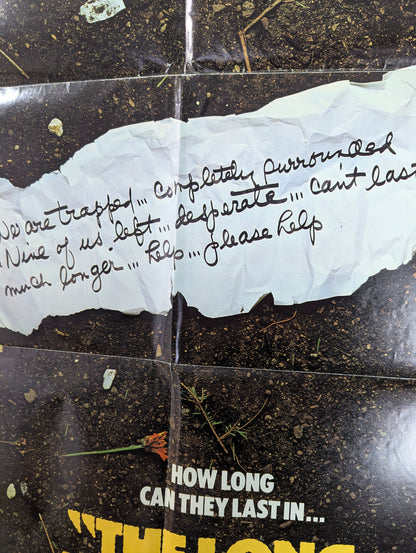 We are trapped... completely surrounded
Nine of us left... desperate... can't last
much longer... help... please help
HOW LONG
CAN THEY LAST IN...
"THE LONG